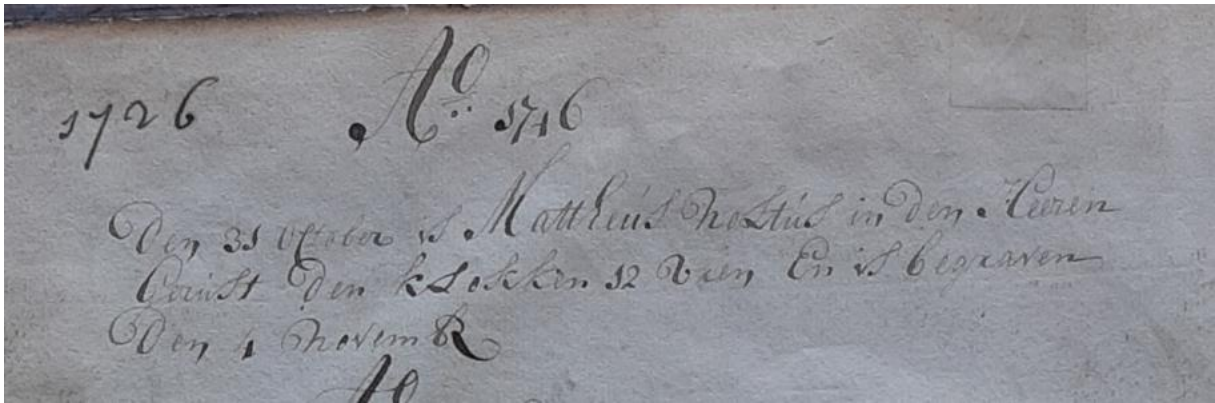 1726 Ao. 1716
Den 31 October is Mattheus Nostus in den Heeren
Gerust den klokken 12 Uren En is begraven
Den 4 novemR
Ao